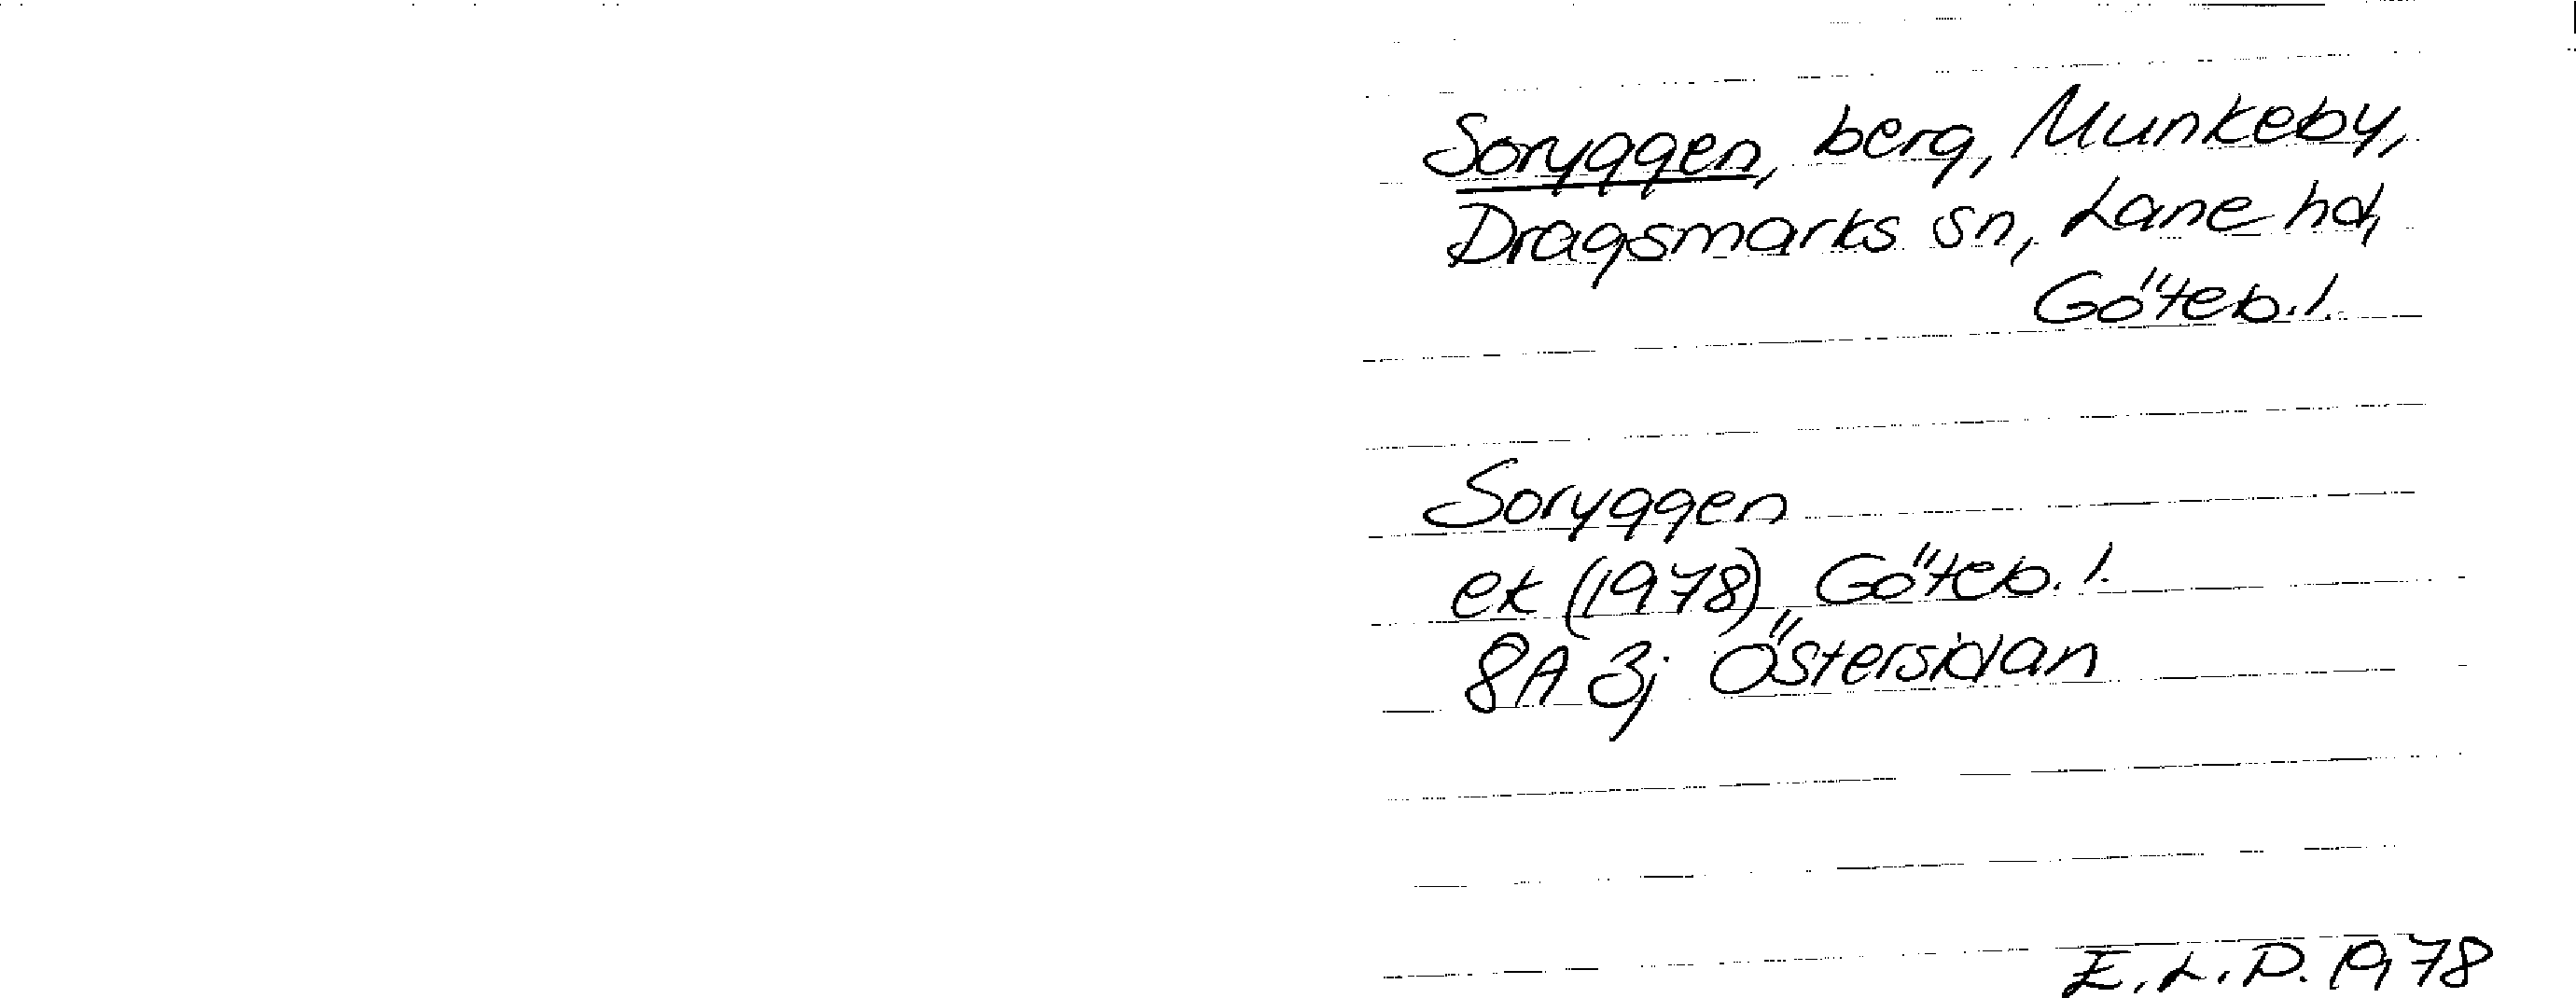 Soryggen, berg, Munkeby,
Dragsmarks sn, Lane hd,
Göteb. l.
Soryggen
ek (1978) Göteb. l.
8A 3j Östersidan
E. L. D. 1978